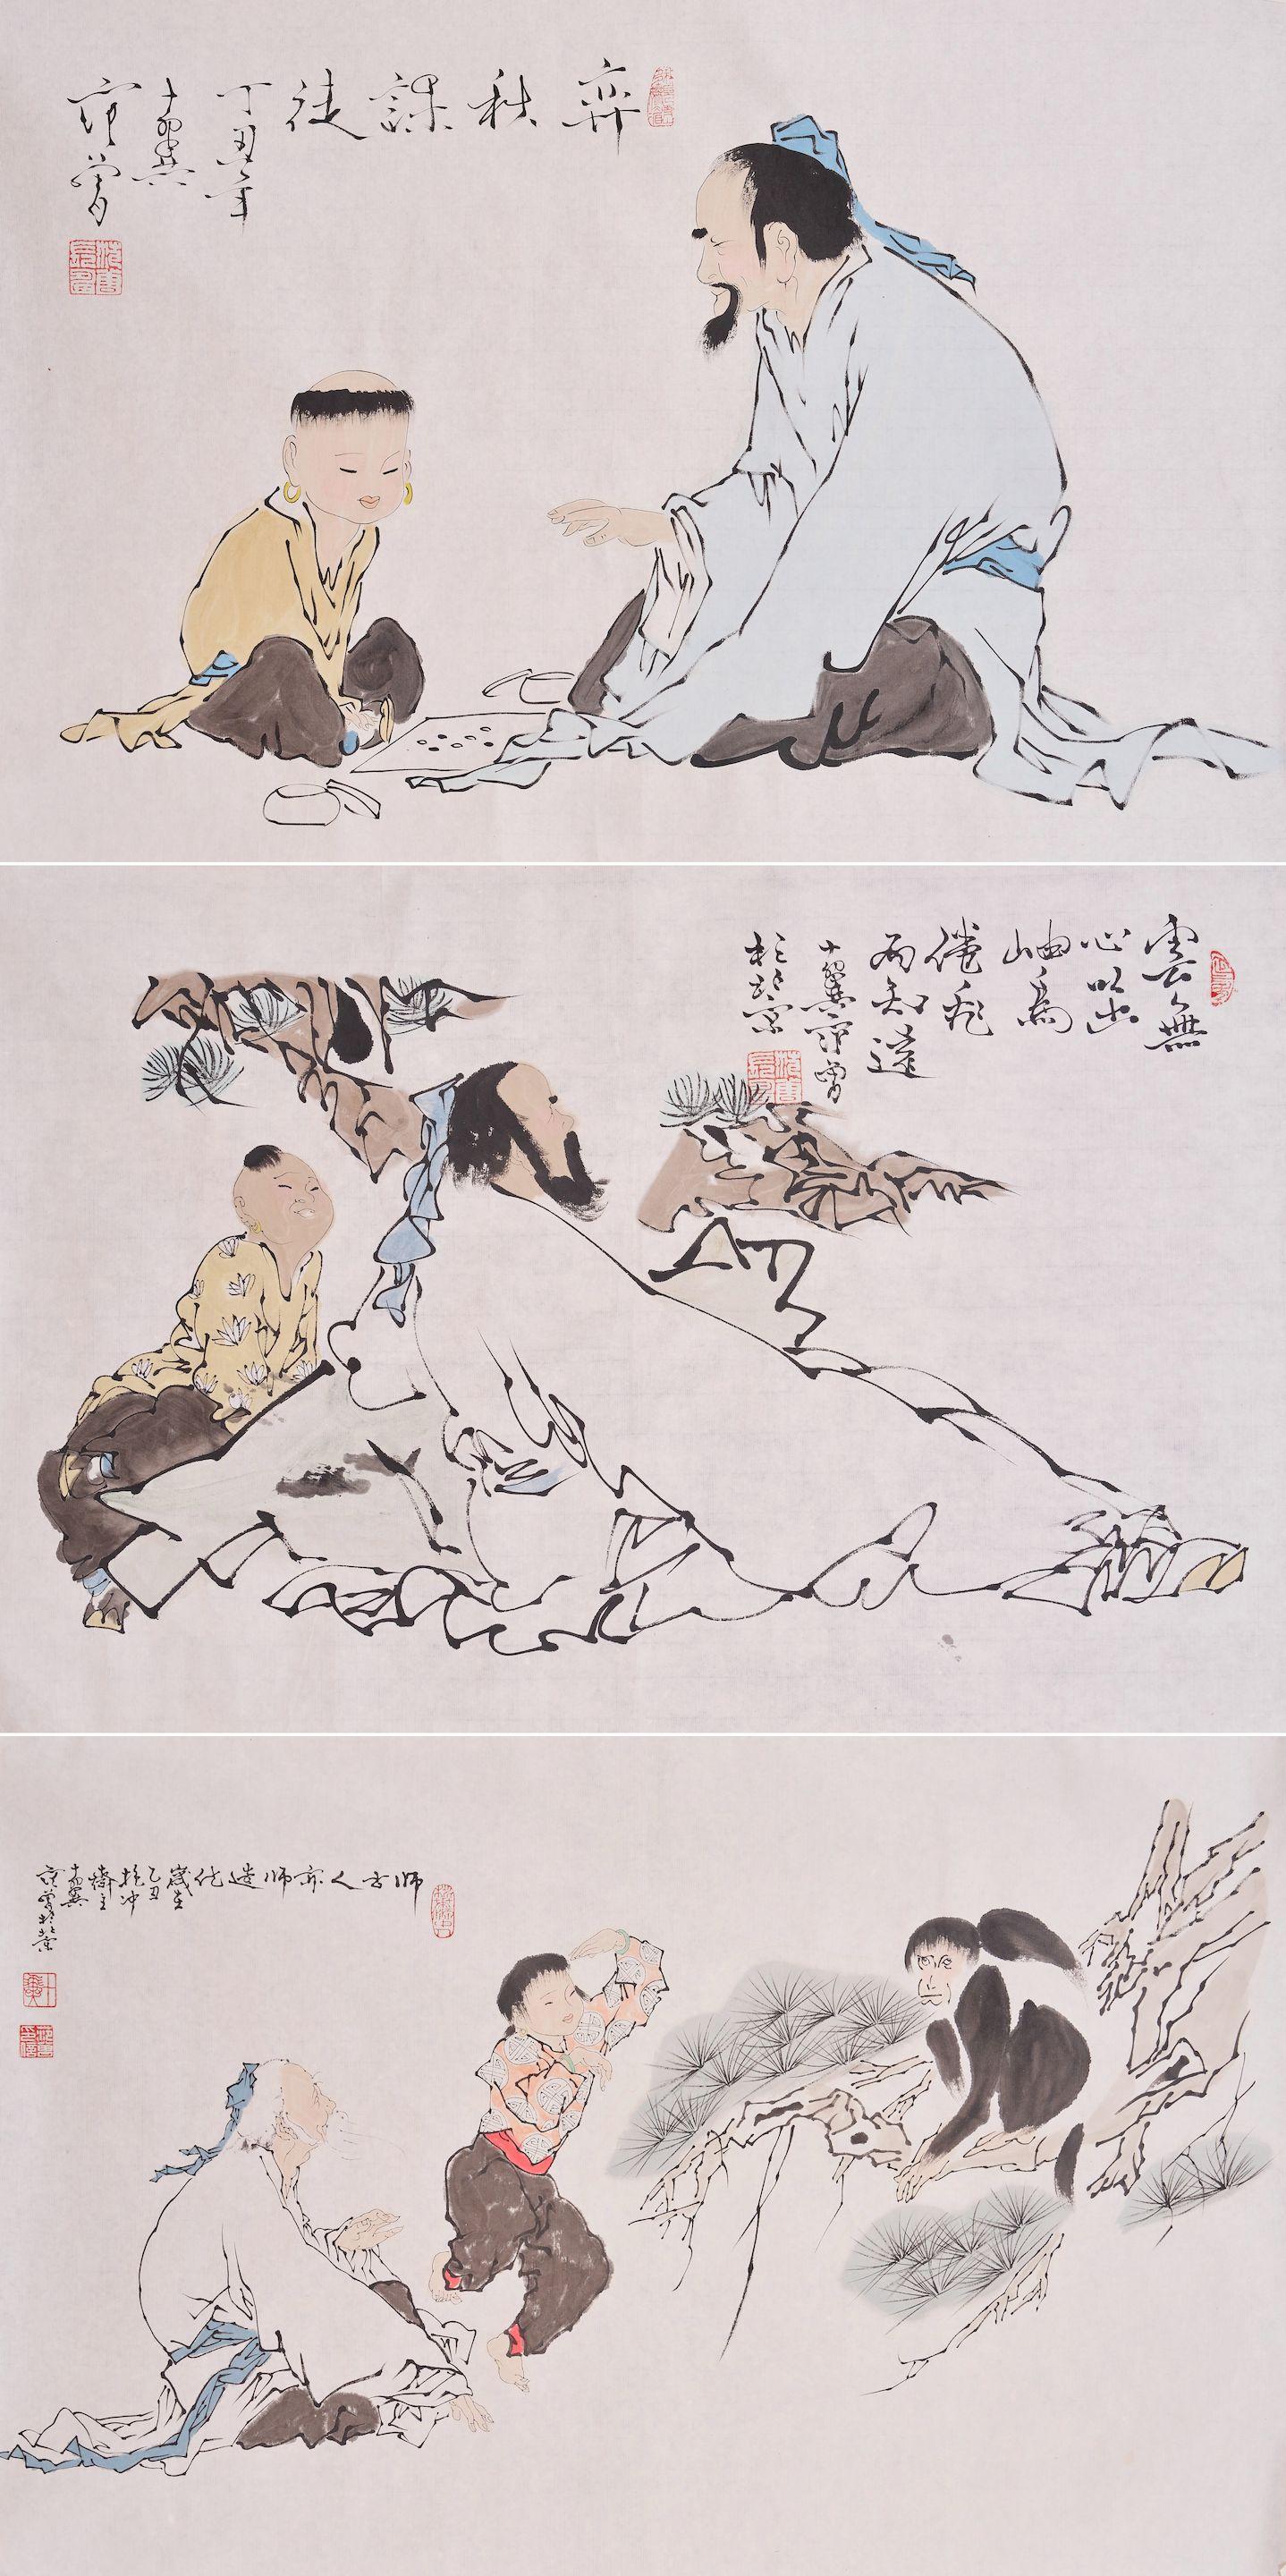 弈
秋
課
徒
丁丑年
十翼
范曾
雲無
心以出
岫鳥
倦飛
而知還
十翼范曾
於北京
师古人亦师造化
歲在
乙丑
抱冲
齋主
十翼
范曾於北京